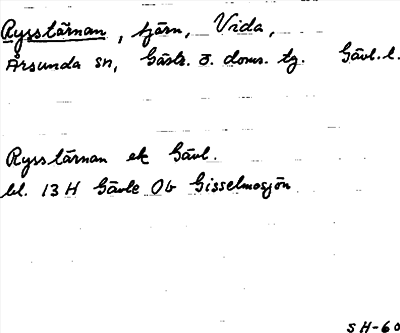 Rysstärnan, tjärn, Vida,
Årsunda sn, Gästr. ö. doms. tg. Gävl. l.
Rysstärnan ek Gävl.
bl. 13 H Gävle 0b Gisselmosjön
SH-60